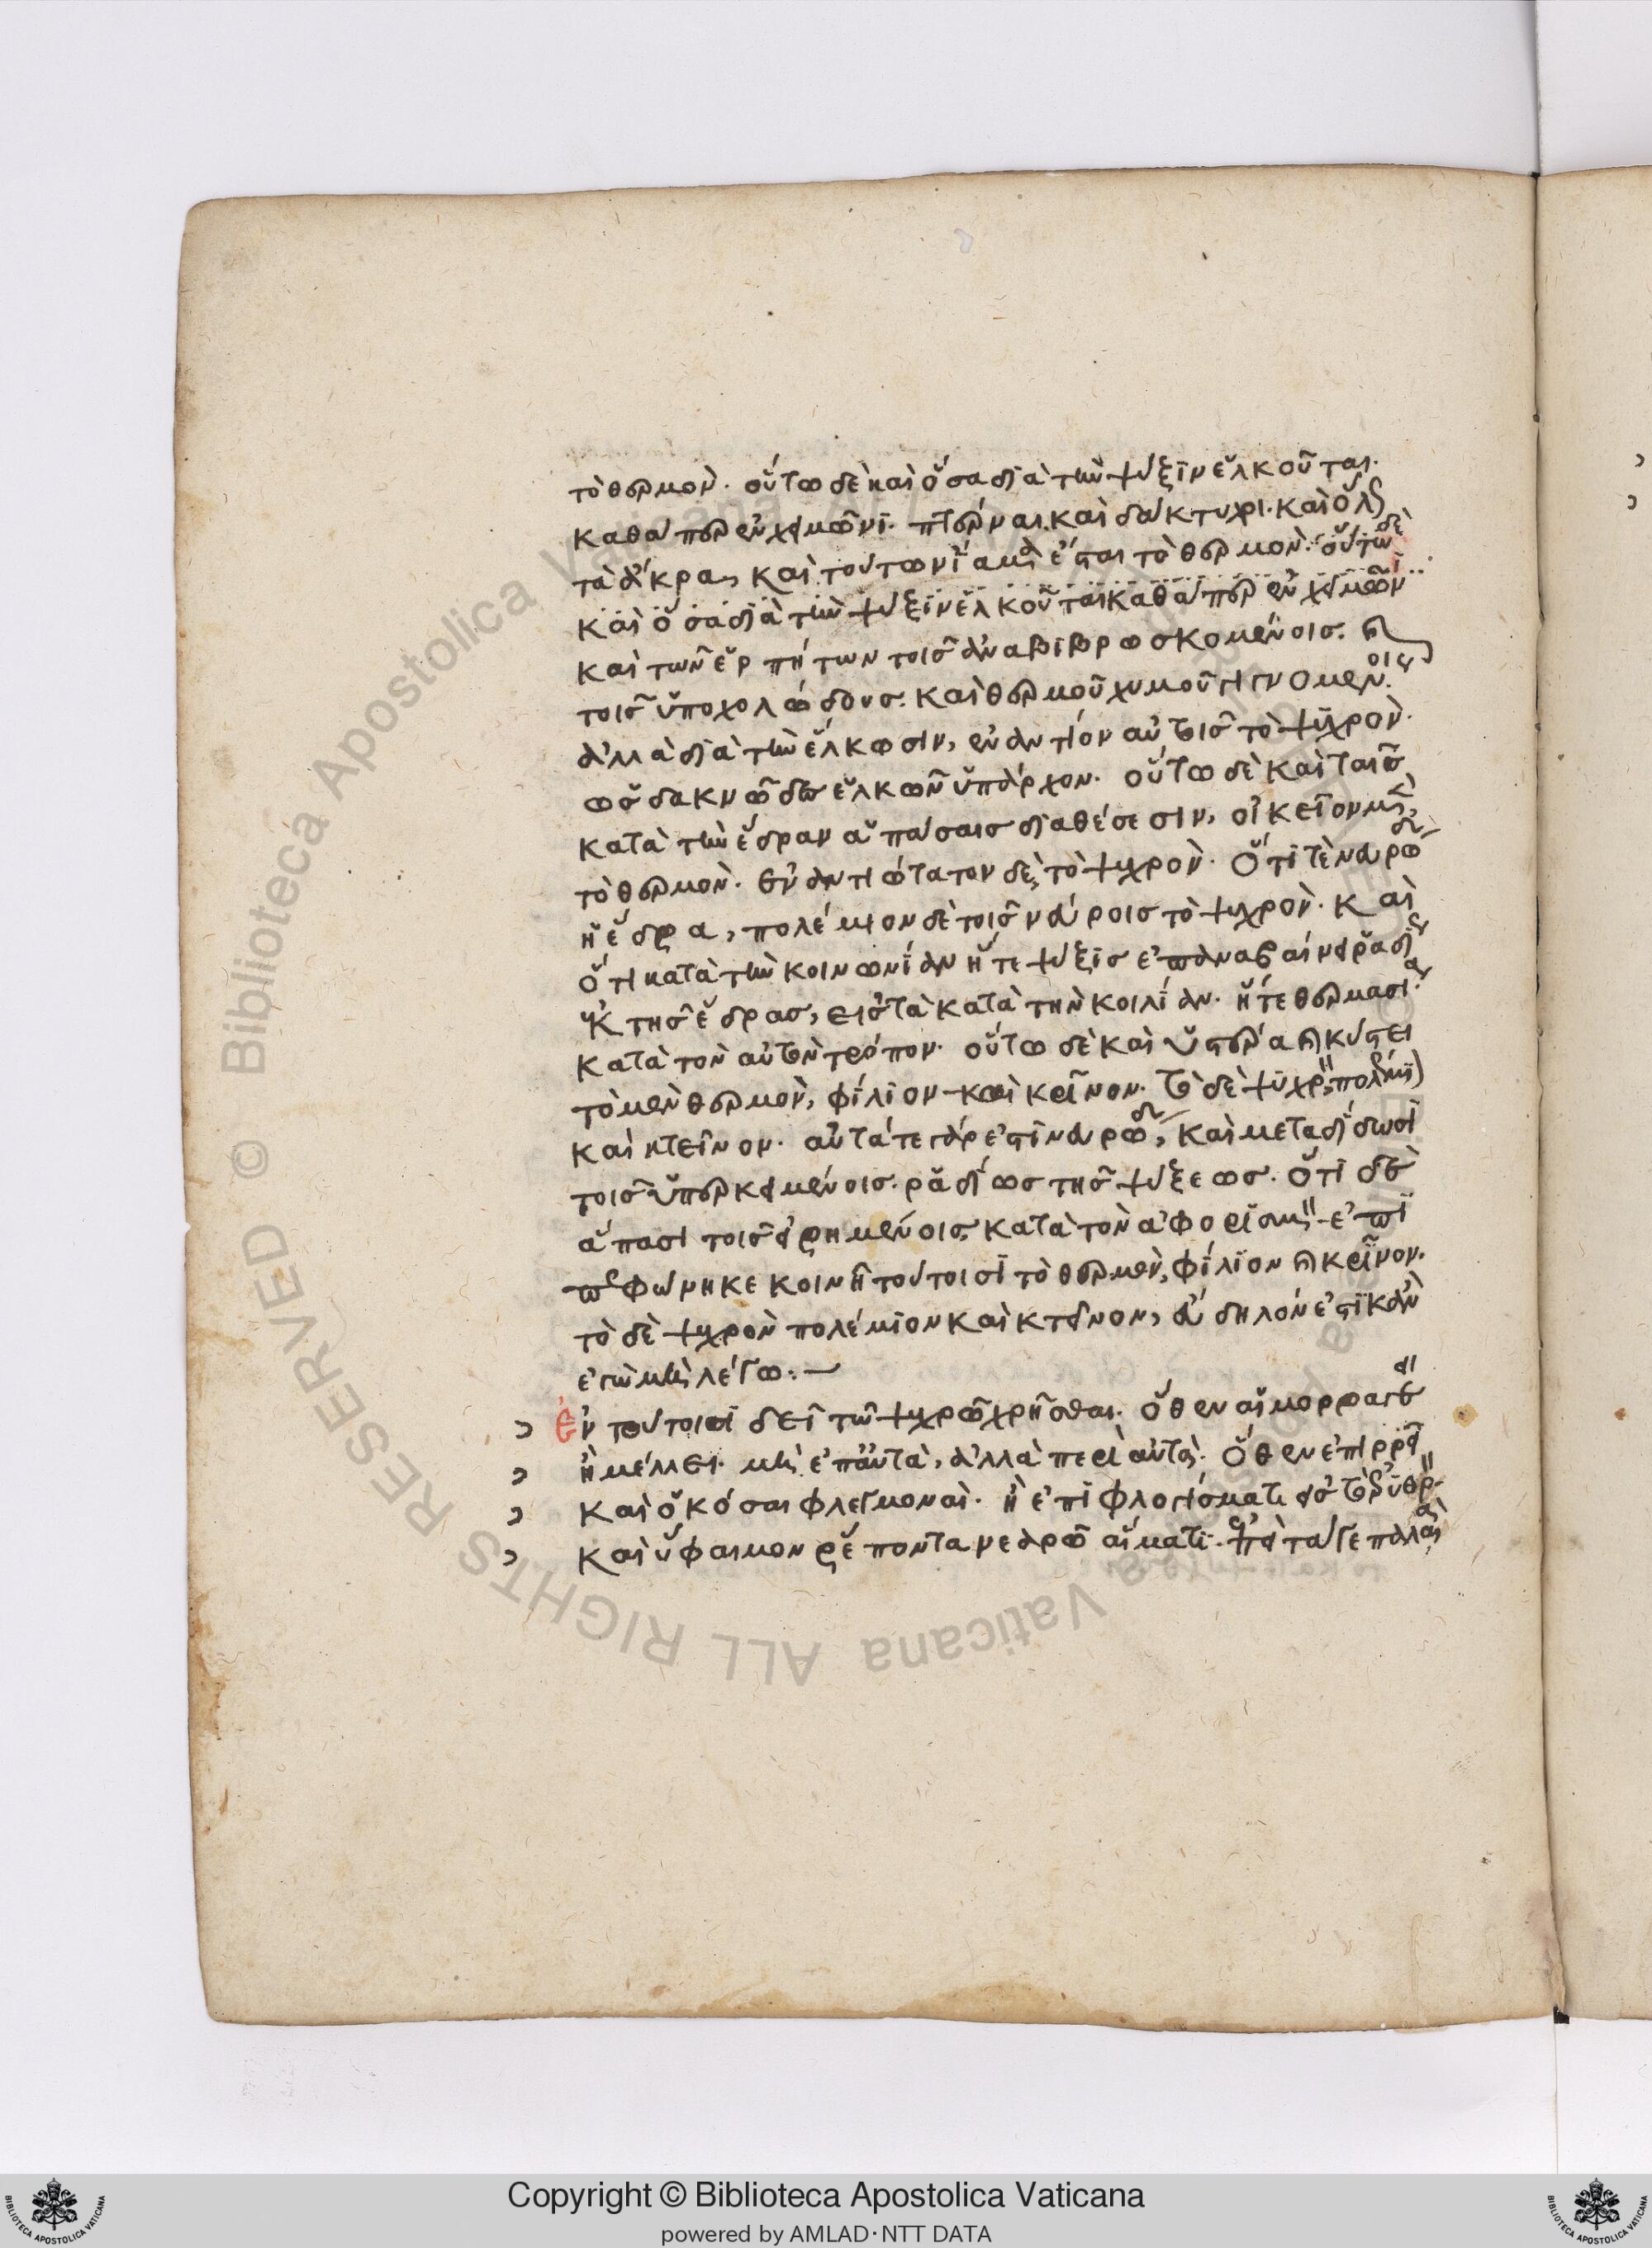 τὸ θερμὸν. οὕτω δὲ καὶ ὅσα διὰ τὴν ψύξιν ἑλκοῦται.
καθάπερ ἐν χειμῶνι. πτέρναι. καὶ δάκτυλοι. καὶ ὅλως
τὰ ἄκρα, καὶ τούτων ἴαμα ἔσται τὸ θερμὸν. οὕτω δὲ
καὶ ὅσα διὰ τὴν ψύξιν ἑλκοῦται καθάπερ ἐν χειμῶνι
καὶ τῶν ἑρπήτων τοῖς ἀναβιβρωσκομένοις. καὶ
τοῖς ὑποχολώδους. καὶ θερμοῦ χυμοῦ γινομένοις.
ἀλλὰ διὰ τὴν ἕλκωσιν, ἐναντίον αὐτοῖς τὸ ψυχρὸν.
ὡς δακνῶδες ἑλκῶν ὑπάρχον. οὕτω δὲ καὶ ταῖς
κατὰ τὴν ἕδραν ἁπάσαις διαθέσεσιν, οἰκεῖον μὲν
τὸ θερμὸν. ἐναντιώτατον δὲ, τὸ ψυχρὸν. ὅτι τὲ νευρώδης
ἡ ἕδρα, πολέμιον δὲ τοῖς νεύροις τὸ ψυχρὸν. καὶ
ὅτι κατὰ τὴν κοινωνίαν ἥτε ψύξις ἐπαναβαίνει ῥᾳδίως
ἐκ τῆς ἕδρας, εἰς τὰ κατὰ τὴν κοιλίαν. ἥτε θερμασία.
κατὰ τὸν αὐτὸν τρόπον. οὕτω δὲ καὶ ὑστέρα καὶ κύστει
τὸ μὲν θερμὸν, φίλιον καὶ κρῖνον. τὸ δὲ ψυχρὸν, πολέμιον
καὶ κτεῖνον. αὐτά τε γάρ ἐστι νευρώδη, καὶ μεταδίδωσι
τοῖς ὑπερκειμένοις. ῥᾳδίως τῆς ψύξεως. ὅτι δὲ
ἅπασι τοῖς εἰρημένοις, κατὰ τὸν ἀφορισμὸν ἐπι
πεφώνηκε κοινῇ τούτοισι τὸ θερμὸν, φίλιον καὶ κρῖνον.
τὸ δὲ ψυχρὸν πολέμιον καὶ κτεῖνον, εὔδηλόν ἐστι κἂν
ἐγὼ μὴ λέγω:—
Ἐν τούτοισι δεῖ τῷ ψυχρῷ χρῆσθαι. ὅθεν αἱμορραγέει
ἢ μέλλει. μὴ ἐπ' αὐτὰ, ἀλλὰ περὶ αὐτὰ. ὅθεν ἐπιρρεῖ
καὶ ὁκόσαι φλεγμοναὶ. ἢ ἐπιφλογίσματα εἰς τὸ ἐρυθρὸν
καὶ ὕφαιμον ῥέποντα νεαρῷ αἵματι. ἐπεὶ τά γε παλαιὰ